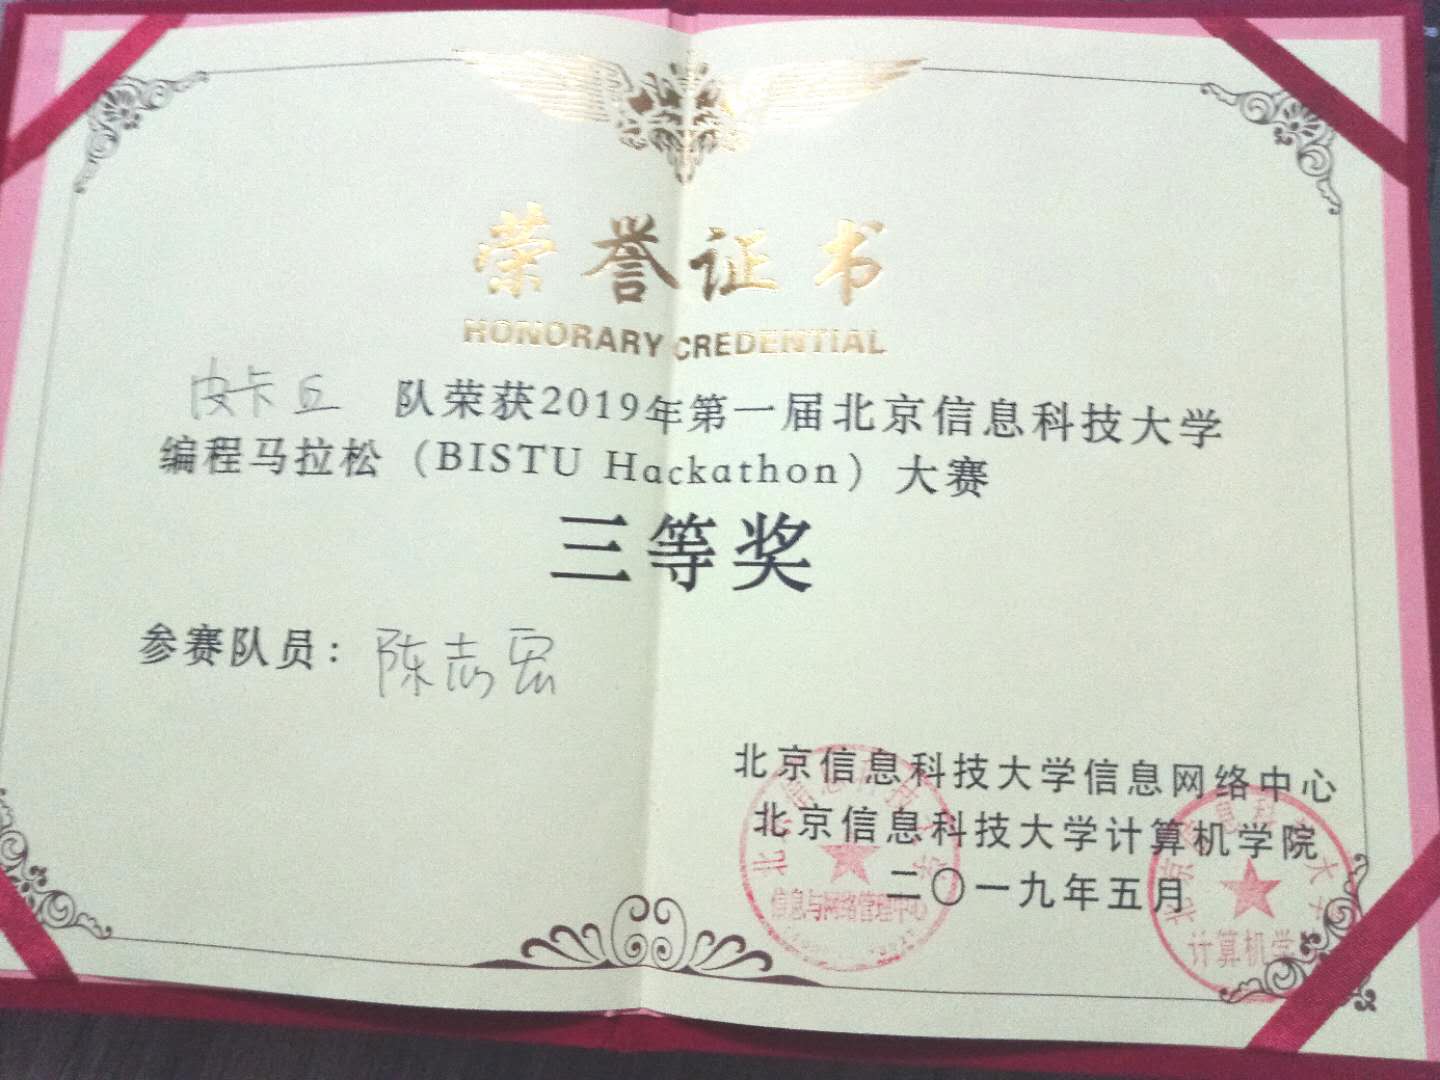 荣誉证书
HONORARY CREDENTIAL
皮卡丘 队荣获2019年第一届北京信息科技大学
编程马拉松（BISTU Hackathon）大赛
三等奖
参赛队员：陈志宏
北京信息科技大学信息网络中心
北京信息科技大学计算机学院
二〇一九年五月
北京信息科技大学
信息与网络管理中心
北京信息科技大学
计算机学院